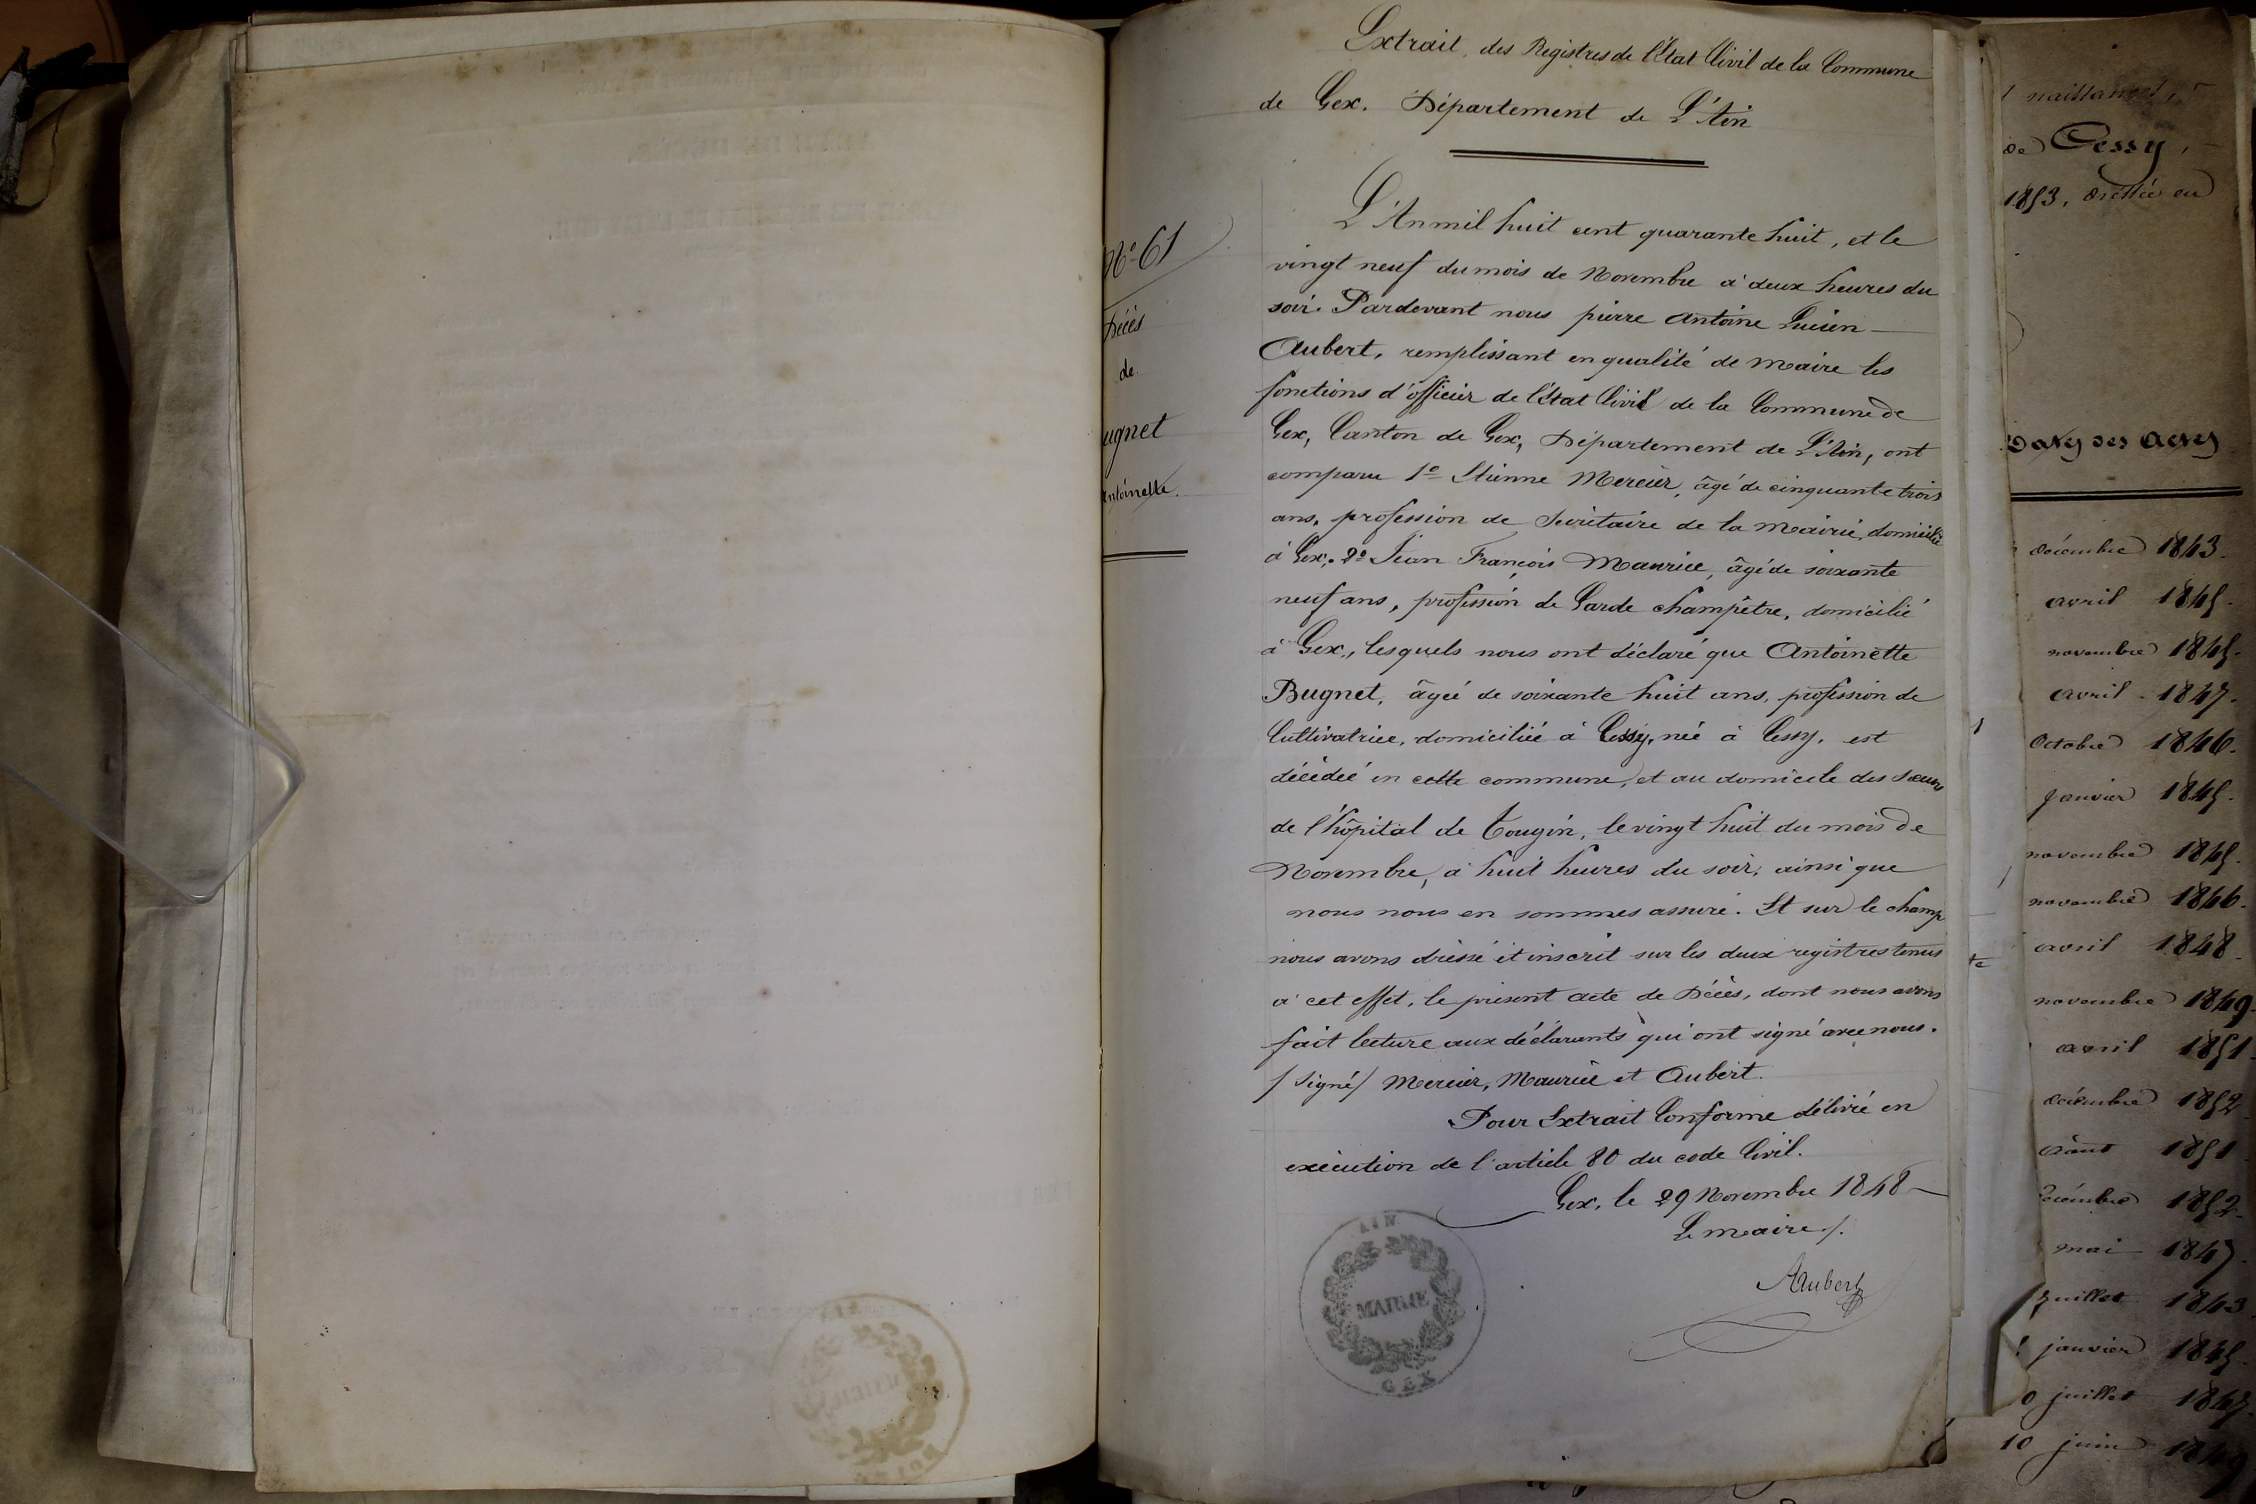 Extrait des Registres de l'Etat Civil de la Commune
de Gex. Département de L'Ain
N.º 61
Décès
de
ugnet
ntoinette.
L'An mil huit cent quarante huit, et le
vingt neuf du mois de Novembre à deux heures du
soir. Pardevant nous pierre Antoine Lucien
Aubert, remplissant en qualité de Maire les
fonctions d'officier de l'état Civil de la Commune de
Gex, Canton de Gex, Département de L'Ain, ont
comparu 1º Etienne Mercier, âgé de cinquante trois
ans, profession de Secrétaire de la Mairie, domicilié
à Gex; 2º Jean François Maurice, âgé de soixante
neuf ans, profession de Garde champêtre, domicilié
à Gex, lesquels nous ont déclaré que Antoinette
Bugnet, âgée de soixante huit ans, profession de
Cultivatrice, domiciliée à Cessy, née à Cessy, est
décédée en cette commune, et au domicile des sœurs
de l'hôpital de Tougin, le vingt huit du mois de
Novembre, à huit heures du soir, ainsi que
nous nous en sommes assuré. Et sur le champ
nous avons dressé et inscrit sur les deux registres tenus
à cet effet, le présent acte de Décès, dont nous avons
fait lecture aux déclarants qui ont signé avec nous.
/ Signé / Mercier, Maurice et Aubert.
Pour Extrait Conforme délivré en
exécution de l'article 80 du code Civil.
Gex, le 29 Novembre 1848
Le maire /.
Aubert
AIN
MAIRIE
GEX
naissances,
de Cessy,
1853, dressée en
Dates des actes
décembre 1843.
avril 1845.
novembre 1845.
avril 1847.
Octobre 1846.
janvier 1845.
novembre 1845.
novembre 1846.
avril 1848
novembre 1849.
avril 1851.
décembre 1852.
août 1851
décembre 1852.
mai 1847.
juillet 1843
janvier 1845.
0 juillet 1847.
10 juin 1849